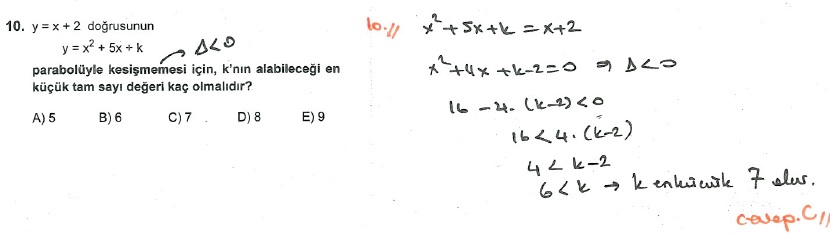 10. y = x + 2 doğrusunun
y = x² + 5x + k
Δ<0
parabolüyle kesişmemesi için, k'nın alabileceği en
küçük tam sayı değeri kaç olmalıdır?
A) 5 B) 6 C) 7 D) 8 E) 9
10.// x²+5x+k = x+2
x²+4x+k-2=0 ⇒ Δ<0
16-4.(k-2)<0
16<4.(k-2)
4<k-2
6<k → k en küçük 7 olur.
Cevap.C//